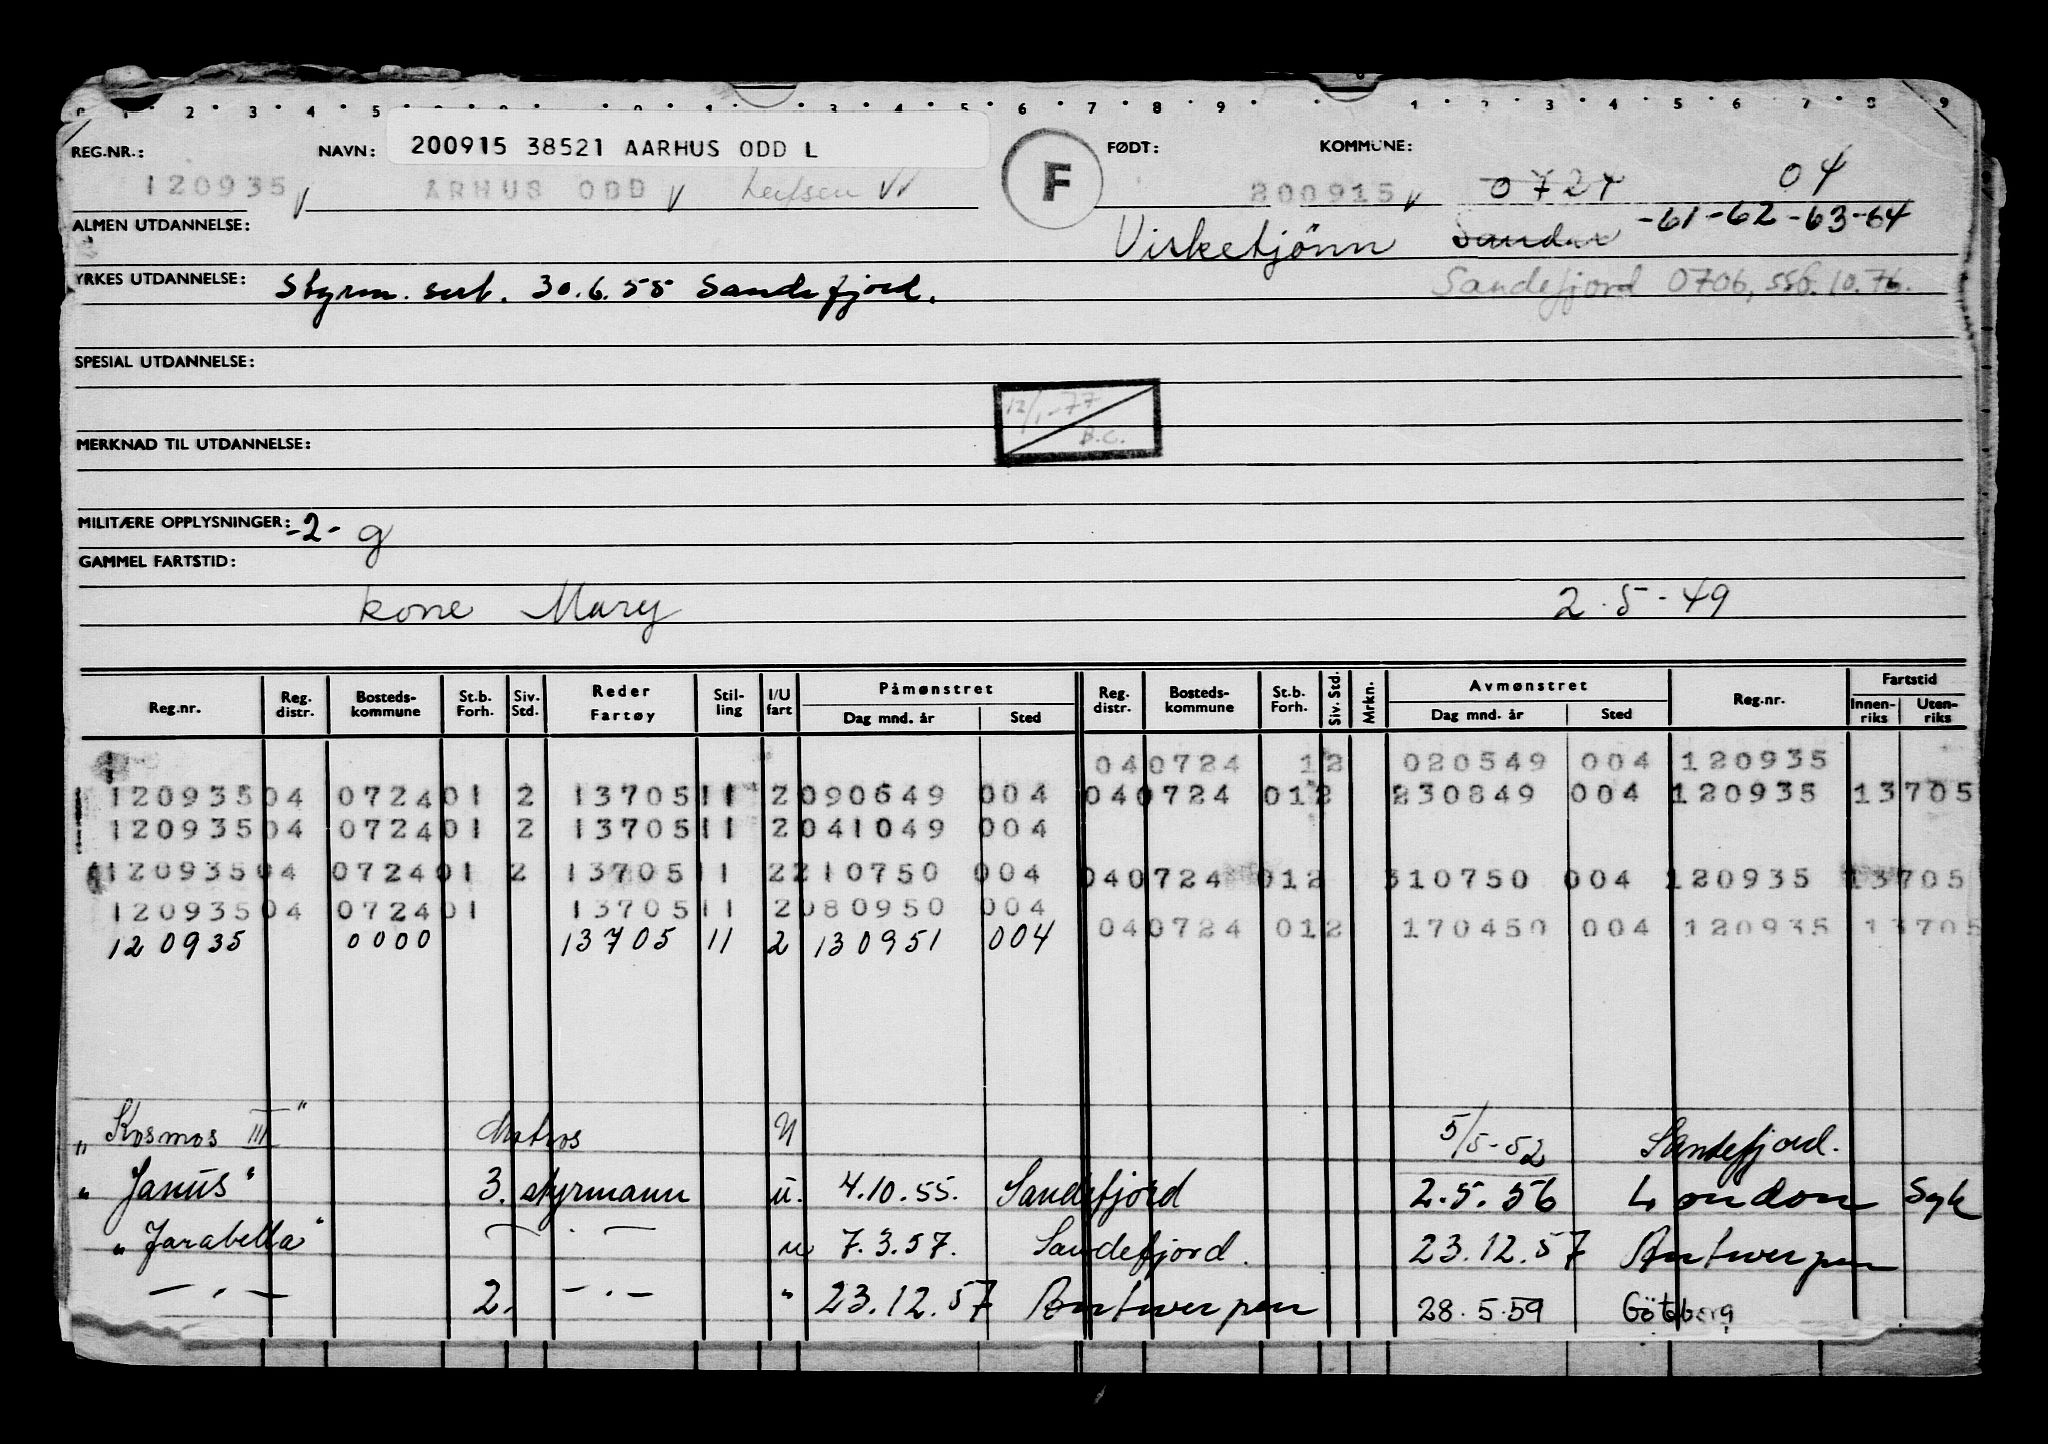 REG.NR.: NAVN: 200915 38521 AARHUS ODD L F FØDT: KOMMUNE:
120935 ARHUS ODD 200915 0724 04
ALMEN UTDANNELSE: Visketjønn Sandar -61-62-63-64
YRKES UTDANNELSE: Styrm. sert. 30.6.55 Sandefjord. Sandefjord 0706, 10.76.
SPESIAL UTDANNELSE:
12/1-77
B.C.
MERKNAD TIL UTDANNELSE:
MILITÆRE OPPLYSNINGER: -2- g
GAMMEL FARTSTID:
kone Mary 2.5-49
Reg.nr. Reg. distr. Bosteds- kommune St.b. Forh. Siv. Std. Reder Fartøy Stil- ling I/U fart Påmønstret Dag mnd. år Sted Reg. distr. Bosteds- kommune St.b. Forh. Siv. Std. Mrkn. Avmønstret Dag mnd. år Sted Reg.nr. Fartstid Innen- riks Uten- riks
04 0724 12 020549 004 120935
120935 04 0724 01 2 13705 11 2 090649 004 04 0724 01 2 230849 004 120935 13705
120935 04 0724 01 2 13705 11 2 041049 004
120935 04 0724 01 2 13705 11 2 210750 004 04 0724 01 2 310750 004 120935 13705
120935 04 0724 01 13705 11 2 080950 004
04 0724 01 2 170450 004 120935 13705
120935 0000 13705 11 2 130951 004
"Kosmos III" Matros U 5/5-52 Sandefjord.
"Janus" 3. styrmann u. 4.10.55. Sandefjord 2.5.56 London Syk
"Jarabella" — . — u 7.3.57. Sandefjord. 23.12.57 Antwerpen
— . — 2. — . — " 23.12.57 Antwerpen 28.5.59 Göteborg